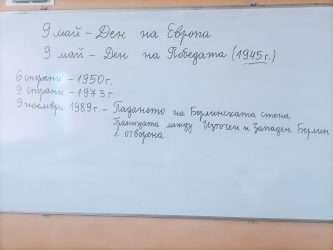 9 май - Ден на Европа
9 май - Ден на Победата (1945г.)
6 страни - 1950г.
9 страни - 1973г.
9 ноември 1989г. - Падането на Берлинската стена
Границата между Източен и Западен Берлин
е отворена